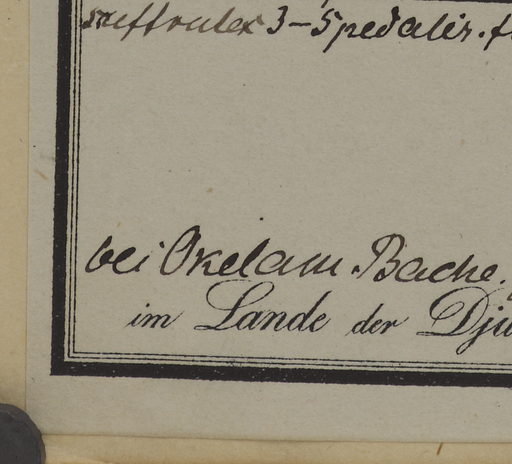 suffrutex 3-5pedalis. f
bei Okelam. Bache.
im Lande der Dju